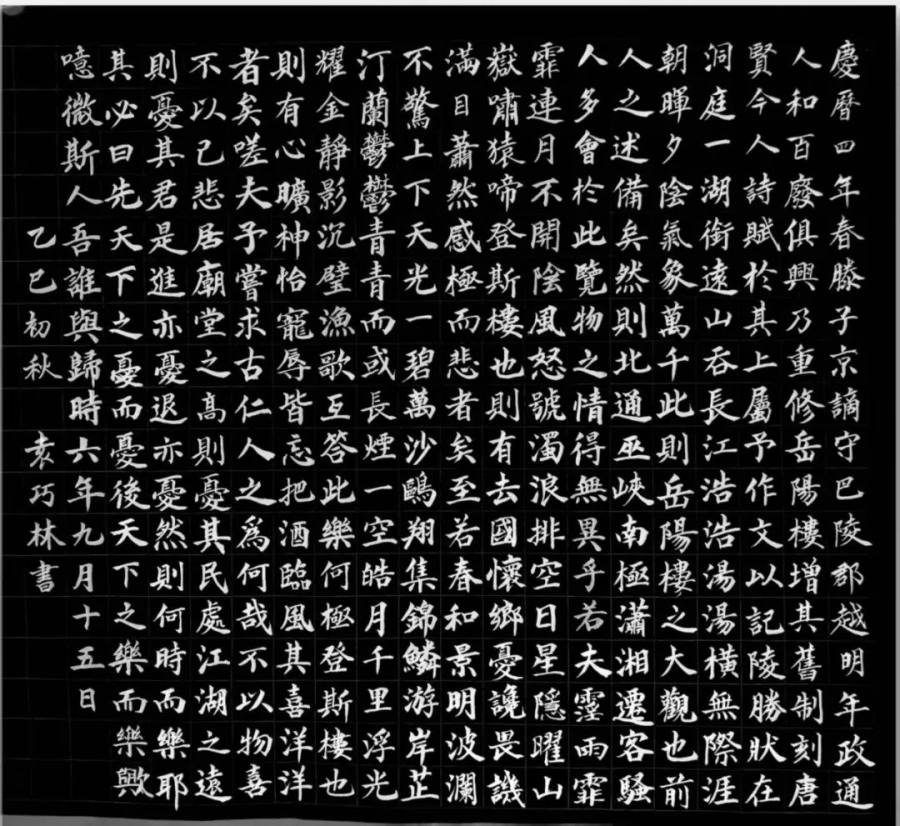 慶曆四年春滕子京謫守巴陵郡越明年政通
人和百廢俱興乃重修岳陽樓增其舊制刻唐
賢今人詩賦於其上屬予作文以記陵勝狀在
洞庭一湖銜遠山吞長江浩浩湯湯橫無際涯
朝暉夕陰氣象萬千此則岳陽樓之大觀也前
人之述備矣然則北通巫峽南極瀟湘遷客騷
人多會於此覽物之情得無異乎若夫霪雨霏
霏連月不開陰風怒號濁浪排空日星隱曜山
嶽嘯猿啼登斯樓也則有去國懷鄉憂讒畏譏
滿目蕭然感極而悲者矣至若春和景明波瀾
不驚上下天光一碧萬沙鷗翔集錦鱗游岸芷
汀蘭鬱鬱青青而或長煙一空皓月千里浮光
耀金靜影沉璧漁歌互答此樂何極登斯樓也
則有心曠神怡寵辱皆忘把酒臨風其喜洋洋
者矣嗟夫予嘗求古仁人之爲何哉不以物喜
不以己悲居廟堂之高則憂其民處江湖之遠
則憂其君是進亦憂退亦憂然則何時而樂耶
其必曰先天下之憂而憂後天下之樂而樂歟
噫微斯人吾誰與歸時六年九月十五日
乙巳初秋 袁巧林書